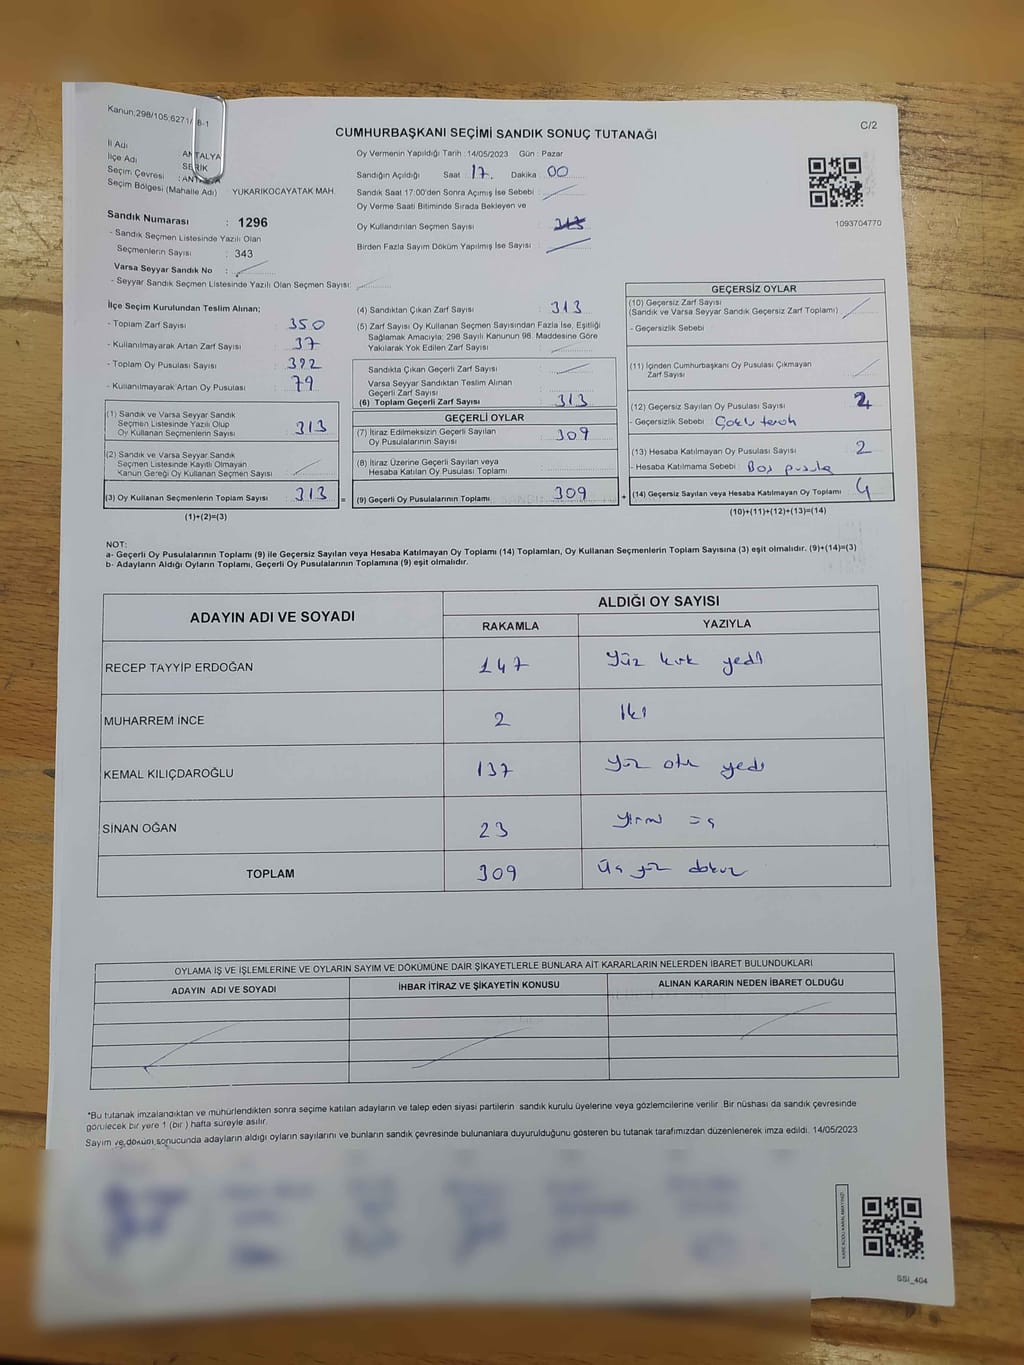 Kanun;298/105;6271/ 8-1
C/2
CUMHURBAŞKANI SEÇİMİ SANDIK SONUÇ TUTANAĞI
İl Adı ANTALYA
İlçe Adı SERİK
Seçim Çevresi : ANTALYA
Seçim Bölgesi (Mahalle Adı) YUKARIKOCAYATAK MAH.
Sandık Numarası : 1296
- Sandık Seçmen Listesinde Yazılı Olan
Seçmenlerin Sayısı : 343
Varsa Seyyar Sandık No :
- Seyyar Sandık Seçmen Listesinde Yazılı Olan Seçmen Sayısı:
Oy Vermenin Yapıldığı Tarih : 14/05/2023 Gün : Pazar
Sandığın Açıldığı Saat 17. Dakika 00
Sandık Saat 17:00'den Sonra Açılmış İse Sebebi :
Oy Verme Saati Bitiminde Sırada Bekleyen ve
Oy Kullandırılan Seçmen Sayısı : 313
Birden Fazla Sayım Döküm Yapılmış İse Sayısı :
1093704770
İlçe Seçim Kurulundan Teslim Alınan;
- Toplam Zarf Sayısı : 350
- Kullanılmayarak Artan Zarf Sayısı : 37
- Toplam Oy Pusulası Sayısı : 392
- Kullanılmayarak Artan Oy Pusulası : 79
(1) Sandık ve Varsa Seyyar Sandık
Seçmen Listesinde Yazılı Olup
Oy Kullanan Seçmenlerin Sayısı : 313
(2) Sandık ve Varsa Seyyar Sandık
Seçmen Listesinde Kayıtlı Olmayan
Kanun Gereği Oy Kullanan Seçmen Sayısı :
(3) Oy Kullanan Seçmenlerin Toplam Sayısı : 313 =
(1)+(2)=(3)
(4) Sandıktan Çıkan Zarf Sayısı : 313
(5) Zarf Sayısı Oy Kullanan Seçmen Sayısından Fazla İse, Eşitliği
Sağlamak Amacıyla; 298 Sayılı Kanunun 98. Maddesine Göre
Yakılarak Yok Edilen Zarf Sayısı :
Sandıkta Çıkan Geçerli Zarf Sayısı :
Varsa Seyyar Sandıktan Teslim Alınan
Geçerli Zarf Sayısı :
(6) Toplam Geçerli Zarf Sayısı : 313
GEÇERLİ OYLAR
(7) İtiraz Edilmeksizin Geçerli Sayılan
Oy Pusulalarının Sayısı : 309
(8) İtiraz Üzerine Geçerli Sayılan veya
Hesaba Katılan Oy Pusulası Toplamı :
(9) Geçerli Oy Pusulalarının Toplamı : 309 +
GEÇERSİZ OYLAR
(10) Geçersiz Zarf Sayısı
(Sandık ve Varsa Seyyar Sandık Geçersiz Zarf Toplamı) :
- Geçersizlik Sebebi :
(11) İçinden Cumhurbaşkanı Oy Pusulası Çıkmayan
Zarf Sayısı :
(12) Geçersiz Sayılan Oy Pusulası Sayısı : 2
- Geçersizlik Sebebi : Çoklu tercih
(13) Hesaba Katılmayan Oy Pusulası Sayısı : 2
- Hesaba Katılmama Sebebi : Boş pusula
(14) Geçersiz Sayılan veya Hesaba Katılmayan Oy Toplamı : 4
(10)+(11)+(12)+(13)=(14)
NOT:
a- Geçerli Oy Pusulalarının Toplamı (9) ile Geçersiz Sayılan veya Hesaba Katılmayan Oy Toplamı (14) Toplamları, Oy Kullanan Seçmenlerin Toplam Sayısına (3) eşit olmalıdır. (9)+(14)=(3)
b- Adayların Aldığı Oyların Toplamı, Geçerli Oy Pusulalarının Toplamına (9) eşit olmalıdır.
ADAYIN ADI VE SOYADI ALDIĞI OY SAYISI
RAKAMLA YAZIYLA
RECEP TAYYİP ERDOĞAN 147 Yüz kırk yedi
MUHARREM İNCE 2 İki
KEMAL KILIÇDAROĞLU 137 Yüz otuz yedi
SİNAN OĞAN 23 Yirmi üç
TOPLAM 309 Üç yüz dokuz
OYLAMA İŞ VE İŞLEMLERİNE VE OYLARIN SAYIM VE DÖKÜMÜNE DAİR ŞİKAYETLERLE BUNLARA AİT KARARLARIN NELERDEN İBARET BULUNDUKLARI
ADAYIN ADI VE SOYADI İHBAR İTİRAZ VE ŞİKAYETİN KONUSU ALINAN KARARIN NEDEN İBARET OLDUĞU
*Bu tutanak imzalandıktan ve mühürlendikten sonra seçime katılan adayların ve talep eden siyasi partilerin sandık kurulu üyelerine veya gözlemcilerine verilir. Bir nüshası da sandık çevresinde
görülecek bir yere 1 (bir ) hafta süreyle asılır.
Sayım ve döküm sonucunda adayların aldığı oyların sayılarını ve bunların sandık çevresinde bulunanlara duyurulduğunu gösteren bu tutanak tarafımızdan düzenlenerek imza edildi. 14/05/2023
KARE KODU KARALAMAYINIZ!
SSI_404